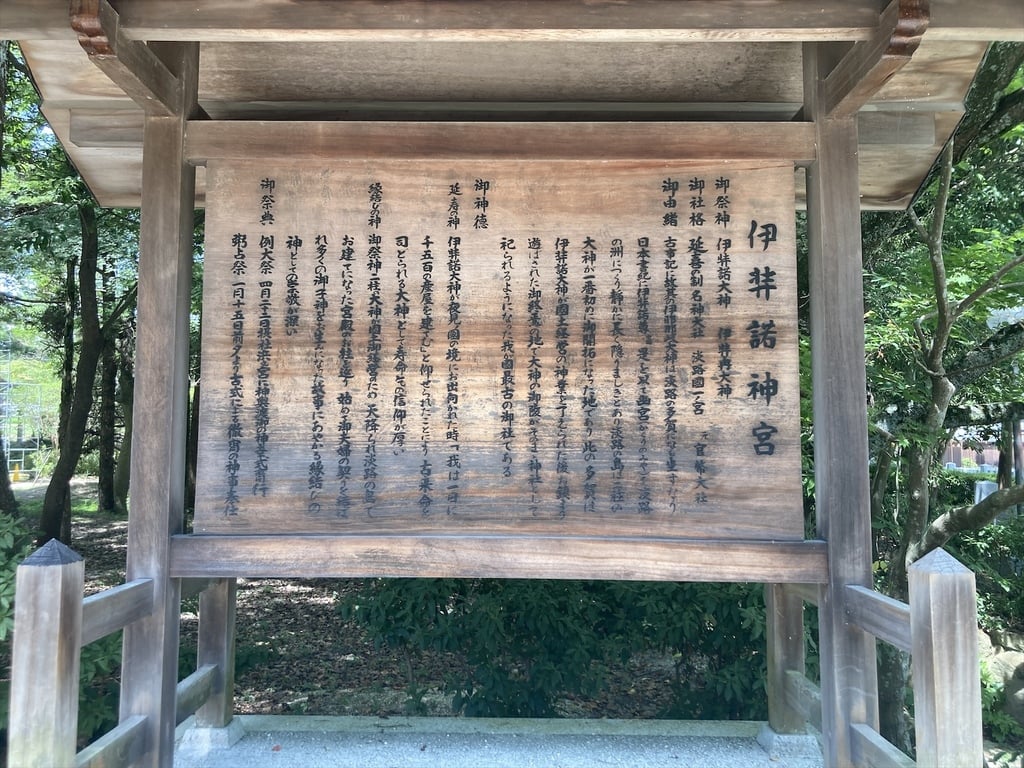 伊弉諾神宮
御祭神 伊弉諾大神 伊弉冉大神
御社格 延喜の制名神大社 淡路國一ノ宮 元官幣大社
御由緒 古事記に故其の伊耶那岐大神は淡路の多賀になも坐すなり
日本書紀に伊弉諾尊 是を以て幽宮をつくりて淡路
の洲につくり静かに長く隠れましきとあり淡路の島は二柱の
大神が一番初めに御開拓になった地であり 此の多賀は
伊弉諾大神が國土経営の神業を了えられた後お鎮まり
遊ばされた御終焉の地で大神の御陵がそのまま神社として
祀られるようになった我が國最古の御社である
御神徳
延寿の神 伊弉諾大神が夜見の国の境にお出向かれた時「我は一日に
千五百の産屋を建てむ」と仰せられたことにより古来命を
司どられる大神として寿命その信仰が厚い
縁結びの神 御祭神二柱の大神が国土御経営のため天降られ淡路の島で
お建てになった宮殿の御柱を巡り 始めて御夫婦の契りを結ば
れ多くの御子神がお生みになった故事にあやかる縁結びの
神としての崇敬が深い
御祭典 例大祭 四月二十二日
粥占祭 一月十五日 古式による